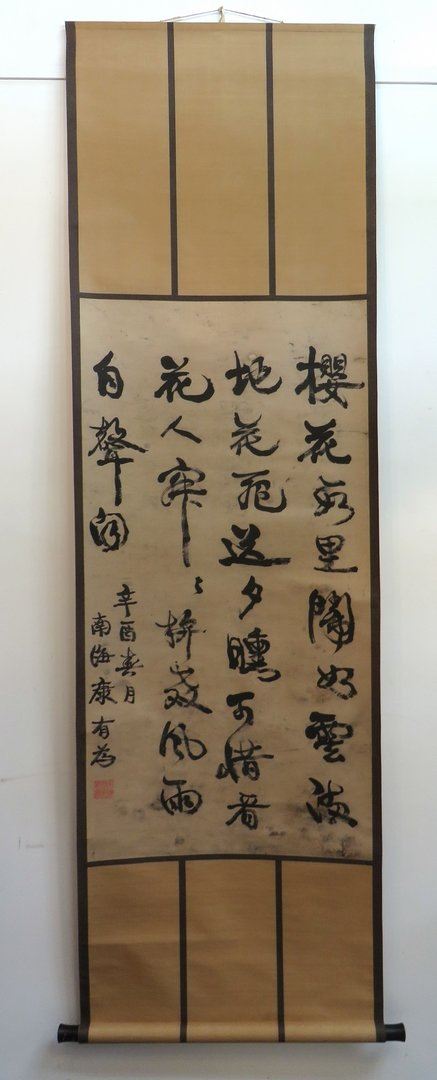 櫻花數里鬧如雲滿
地花飛送夕曛可惜看
花人寥寥櫻花風雨
自聲聞
辛酉春月
南海康有為